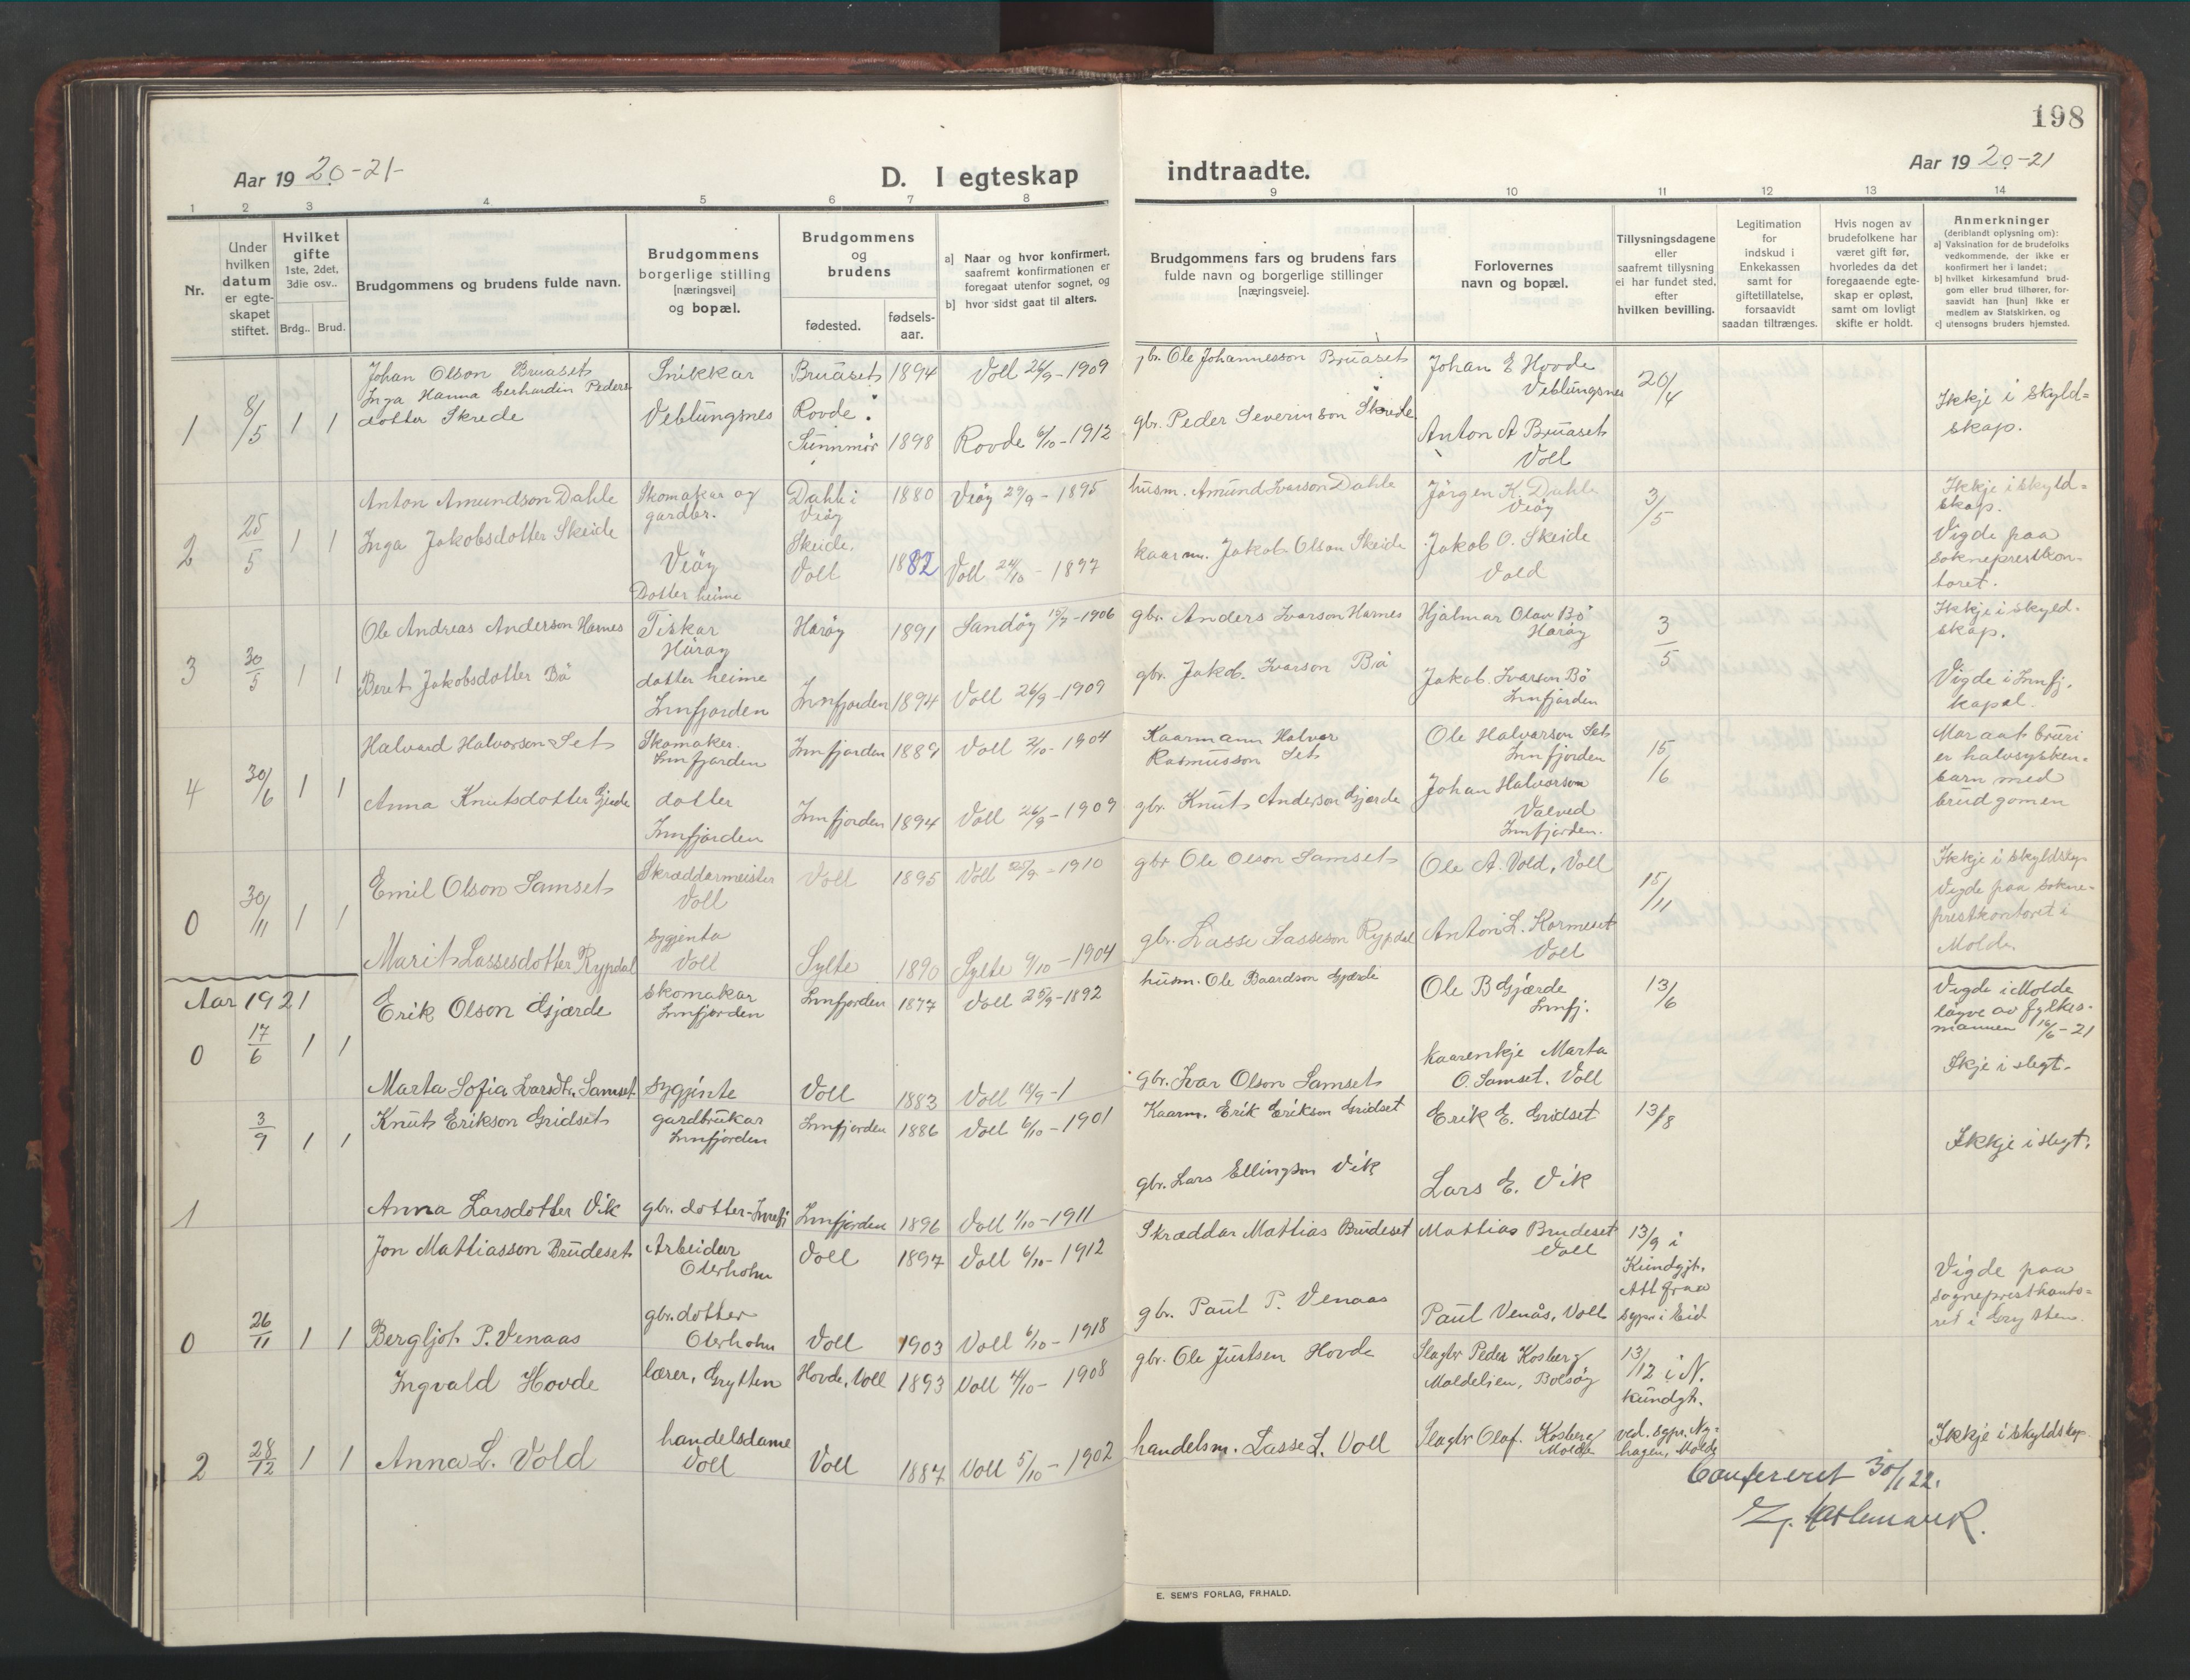 198
Aar 19 20-21-
D. I egteskap indtraadte.
Aar 19 20-21
1 2 3 4 5 6 7 8 9 10 11 12 13 14
Nr.
Under hvilken datum er egte-skapet stiftet.
Hvilket gifte 1ste, 2det, 3die osv..
Brdg.. Brud.
Brudgommens og brudens fulde navn.
Brudgommens borgerlige stilling [næringsvei] og bopæl.
Brudgommens og brudens
fødested. fødsels-aar.
a] Naar og hvor konfirmert, saafremt konfirmationen er foregaat utenfor sognet, og
b] hvor sidst gaat til alters.
Brudgommens fars og brudens fars fulde navn og borgerlige stillinger [næringsveie].
Forlovernes navn og bopæl.
Tillysningsdagene eller saafremt tillysning ei har fundet sted, efter hvilken bevilling.
Legitimation for indskud i Enkekassen samt for giftetillatelse, forsaavidt saadan tiltrænges.
Hvis nogen av brudefolkene har været gift før, hvorledes da det foregaaende egte-skap er opløst, samt om lovligt skifte er holdt.
Anmerkninger (deriblandt oplysning om):
a] Vaksination for de brudefolks vedkommende, der ikke er konfirmert her i landet;
b] hvilket kirkesamfund brud-gom eller brud tilhører, for-saavidt han [hun] ikke er medlem av Statskirken, og
c] utensogns bruders hjemsted.
1 8/5 1 1 Johan Olson Bruaset Snikkar Veblungsnes Bruaset 1894 Voll 26/9-1909 gbr. Ole Johannesson Bruaset Johan E Hovde Veblungsnes 20/4 Ikkje i skyld=skap.
Inga Hanna Gerhardin Peders dotter Skrede Rovde Sunnmör 1898 Rovde 6/10-1912 gbr. Peder Severinson Skrede Anton A Bruaset Voll
2 25/5 1 1 Anton Amundson Dahle Skomakar og gardbr. Veöy Dahle i Veöy 1880 Veöy 29/9-1895 husm. Amund Ivarson Dahle Jörgen K. Dahle Veöy 3/5 Ikkje i skyld=skap. Vigde paa sokneprestkon-toret.
Inga Jakobsdotter Skeide Dotter heime Skeide, Voll 1882 Voll 24/10-1897 kaarm. Jakob Olson Skeide Jakob O. Skeide Vold
3 30/5 1 1 Ole Andreas Anderson Harnes Fiskar Haröy Haröy 1891 Sandöy 15/7-1906 gbr. Anders Ivarson Harnes Hjalmar Olav Bö Haröy 3/5 Ikkje i skyld-skap. Vigde i Innfj. kapel.
Beret Jakobsdotter Bö dotter heime Innfjorden Innfjorden 1894 Voll 26/9-1909 gbr. Jakob Ivarson Bö Jakob Ivarson Bö Innfjorden
4 30/6 1 1 Halvard Halvorson Set Skomaker. Innfjorden Innfjorden 1889 Voll 2/10-1904 Kaarmann Halvor Rasmusson Set Ole Halvorson Set Innfjorden 15/6 Mor aat bruri er halvsysken=barn med brudgomen
Anna Knutsdotter Gjerde dotter Innfjorden Innfjorden 1894 Voll 26/9-1909 gbr. Knut Anderson Gjærde Johan Halvorson Valved Innfjorden.
0 30/11 1 1 Emil Olson Samset Skræddarmeister Voll Voll 1895 Voll 25/9-1910 gbr Ole Olson Samset Ole A. Vold, Voll 15/11 Ikkje i skyldskap Vigde paa sokne-prestkontoret i Molde.
Marit Lassesdotter Rypdal sygjenta Voll Sylte 1890 Sylte 9/10-1904 gbr. Lasse Lasseson Rypdal Anton L. Kormeset Voll
Aar 1921
0 17/6 1 1 Erik Olson Gjærde skomakar Innfjorden Innfjorden 1877 Voll 25/9-1892 husm. Ole Baardson Gjærde Ole B Gjærde Innfj. 13/6 Vigde i Molde löyve av fylkes-mannen 16/6-21 Ikje i slegt.
Marta Sofia Ivarsdtr. Samset sygjente Voll 1883 Voll 18/9-1 gbr. Ivar Olson Samset kaarenkje Marta O. Samset. Voll
1 3/9 1 1 Knut Erikson Gridset gardbrukar Innfjorden Innfjorden 1886 Voll 6/10-1901 Kaarm. Erik Erikson Gridset Erik E. Gridset 13/8 Ikkje i slegt.
Anna Larsdotter Vik gbr. dotter-Innfj Innfjorden 1896 Voll 1/10-1911 gbr. Lars Ellingson Vik Lars E. Vik
0 26/11 1 1 Jon Mattiasson Brudeset Arbeidar Oterholm Voll 1897 Voll 6/10-1912 Skræddar Mattias Brudeset Mattias Brudeset Voll 13/9 i Kundgjt. Att fraa sypr i Eid Vigde paa sogneprestkonto=ret i Grytten.
Bergljot P. Venaas gbr. dotter Oterholm Voll 1903 Voll 6/10-1918 gbr. Paul P. Venaas Paul Venås, Voll
2 28/12 1 1 Ingvald Hovde lærer, Grytten Hovde, Voll 1893 Voll 4/10-1908 gbr. Ole Justsen Hovde Slagtr Peder Kosberg Moldelien, Bolsöy 13/12 i N. kundgt. ved. sgpr. Ny=hagen, Molde Ikkje i skyldskap.
Anna L. Vold handelsdame Voll Voll 1887 Voll 5/10-1902 handelsm. Lasse L. Voll Slagtr Olaf. Kosberg Molde
Confereret 30/1 22.
E. SEM'S FORLAG, FR.HALD.